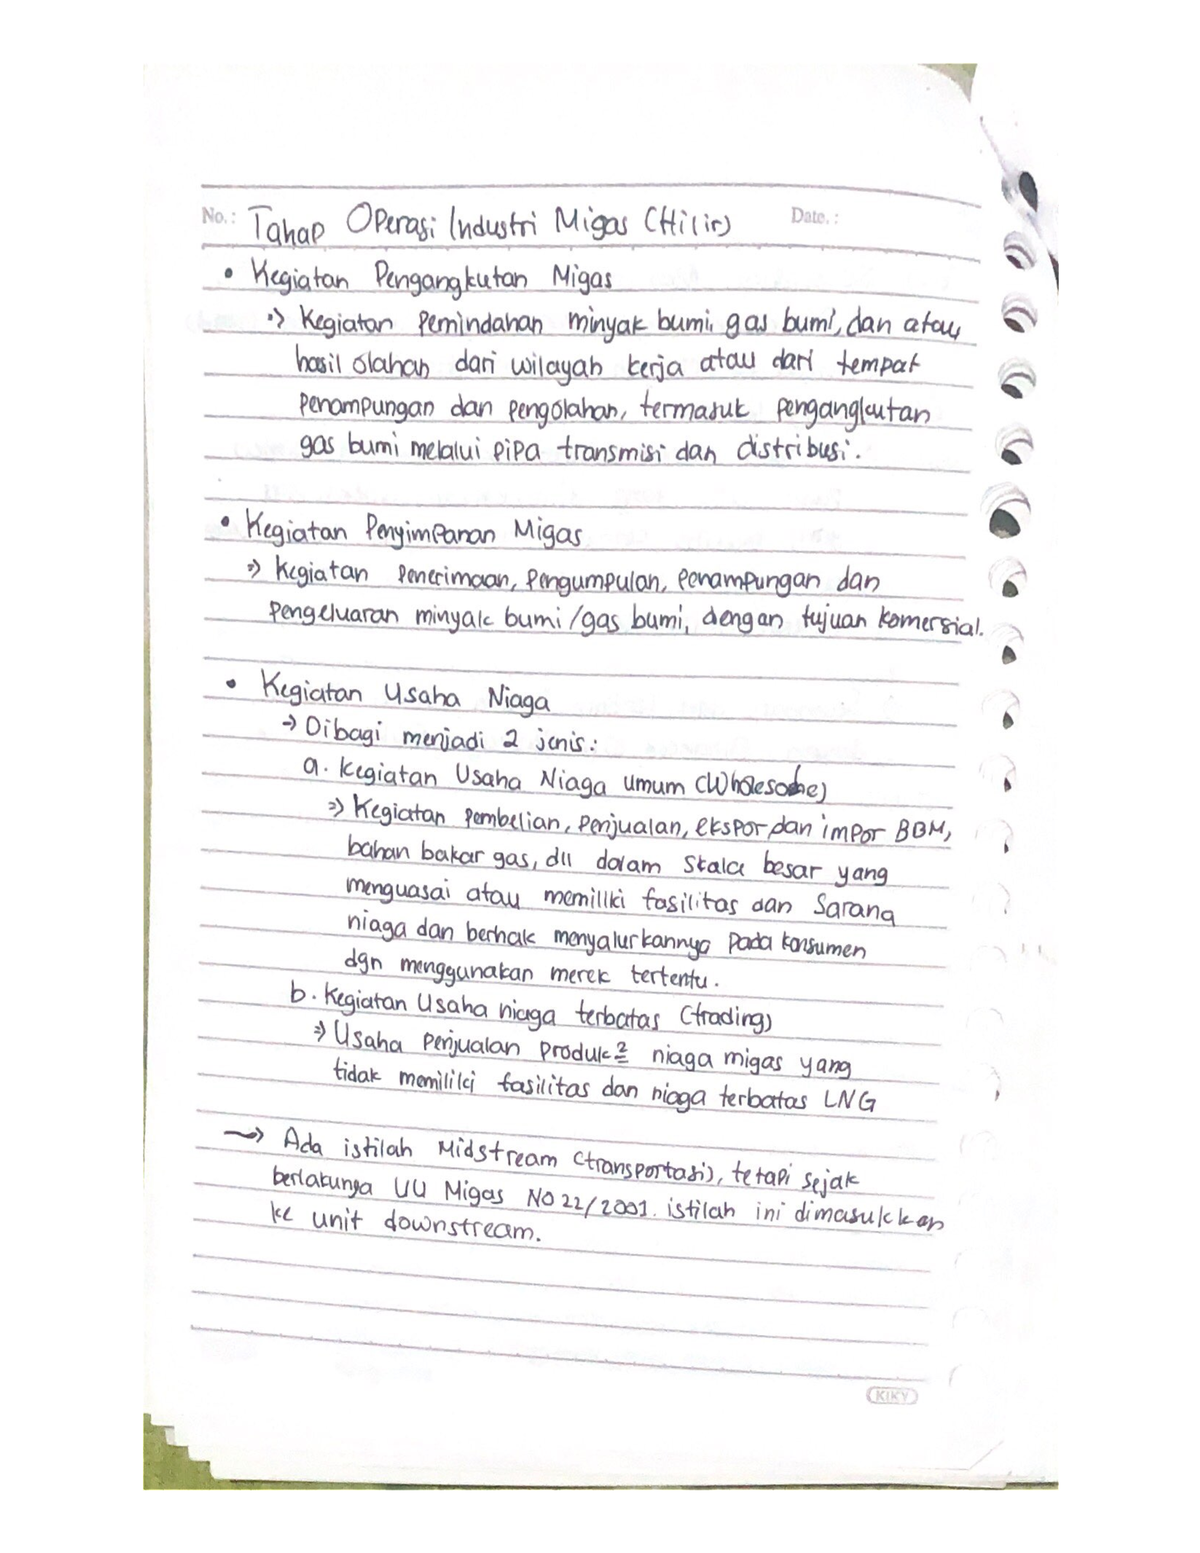 No.: Tahap Operasi Industri Migas (Hilir) Date. :
• Kegiatan Pengangkutan Migas
⇒ Kegiatan Pemindahan minyak bumi, gas bumi, dan atau
hasil olahan dari wilayah kerja atau dari tempat
Penampungan dan pengolahan, termasuk pengangkutan
gas bumi melalui pipa transmisi dan distribusi.
• Kegiatan Penyimpanan Migas
⇒ Kegiatan penerimaan, pengumpulan, penampungan dan
pengeluaran minyak bumi/gas bumi, dengan tujuan komersial.
• Kegiatan Usaha Niaga
→ Dibagi menjadi 2 jenis:
a. Kegiatan Usaha Niaga umum (Wholesale)
⇒ Kegiatan pembelian, penjualan, ekspor dan impor BBM,
bahan bakar gas, dll dalam skala besar yang
menguasai atau memiliki fasilitas dan Sarana
niaga dan berhak menyalurkannya pada konsumen
dgn menggunakan merek tertentu.
b. Kegiatan Usaha niaga terbatas (trading)
⇒ Usaha Penjualan produk² niaga migas yang
tidak memiliki fasilitas dan niaga terbatas LNG
→ Ada istilah Midstream (transportasi), tetapi sejak
berlakunya UU Migas No 22/2001. istilah ini dimasukkan
ke unit downstream.
KIKY